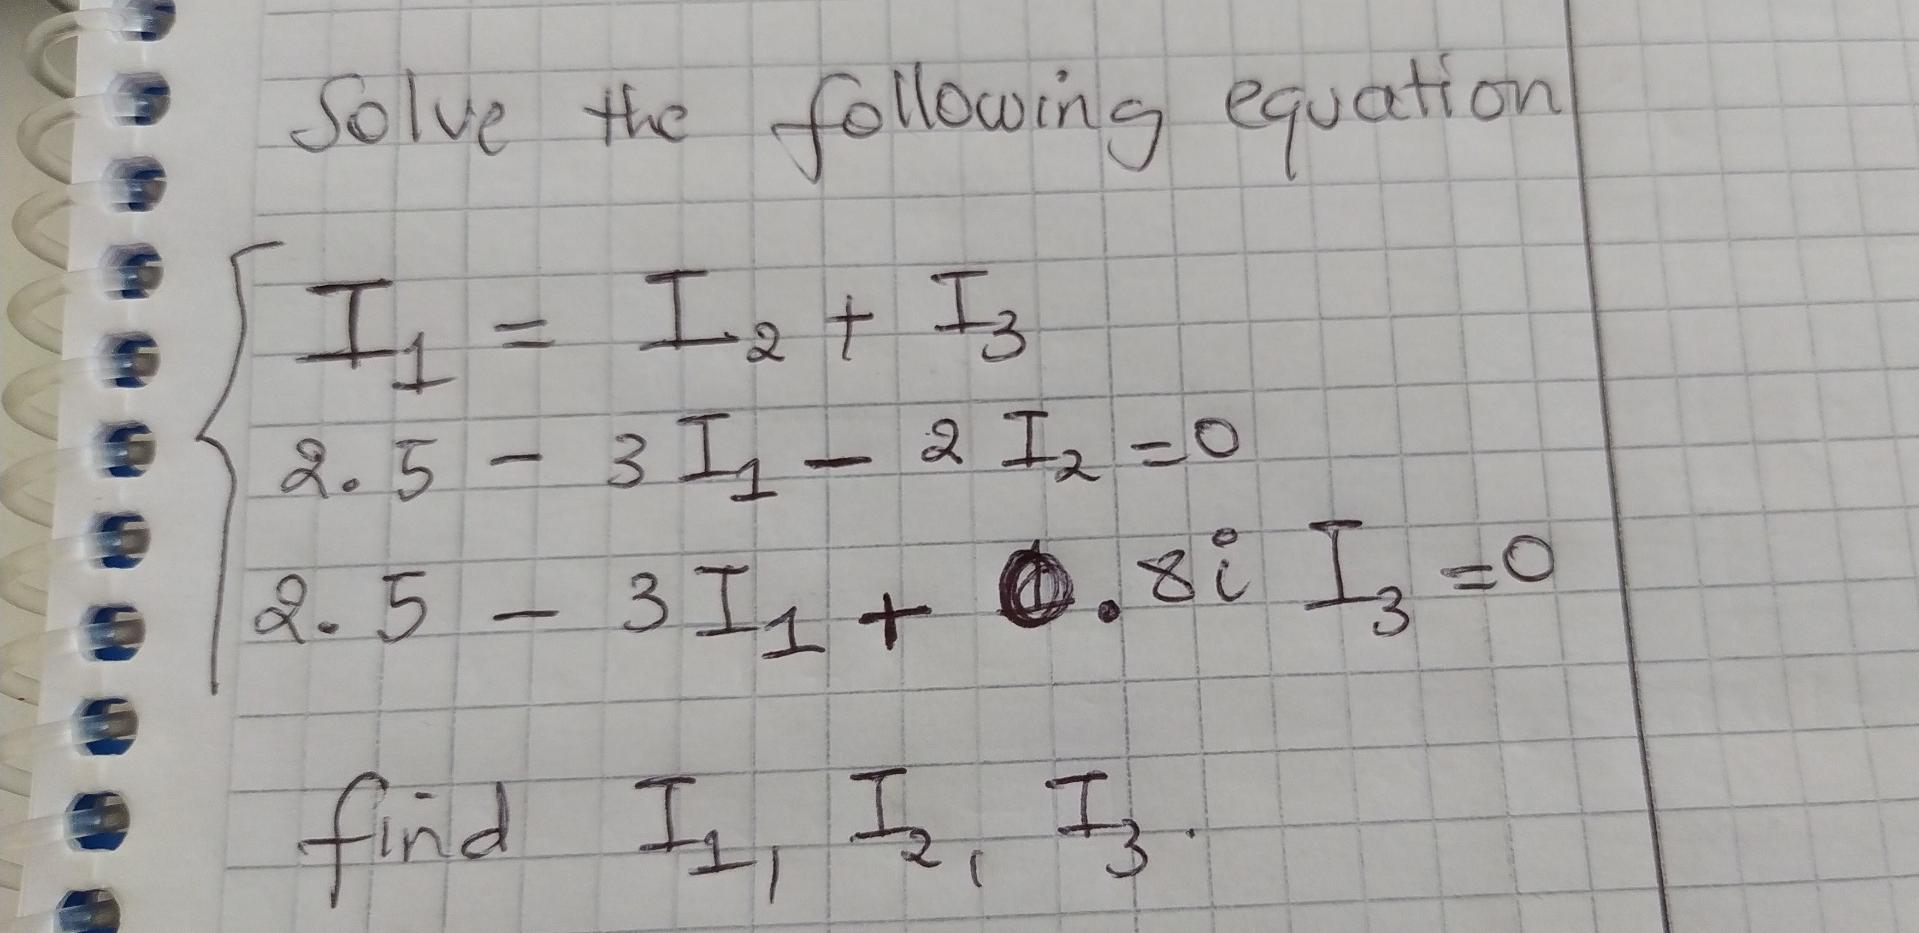 Solve the following equation
I₁ = I₂ + I₃
2.5 - 3I₁ - 2I₂ = 0
2.5 - 3I₁ + 0.8i I₃ = 0
find I₁, I₂, I₃.